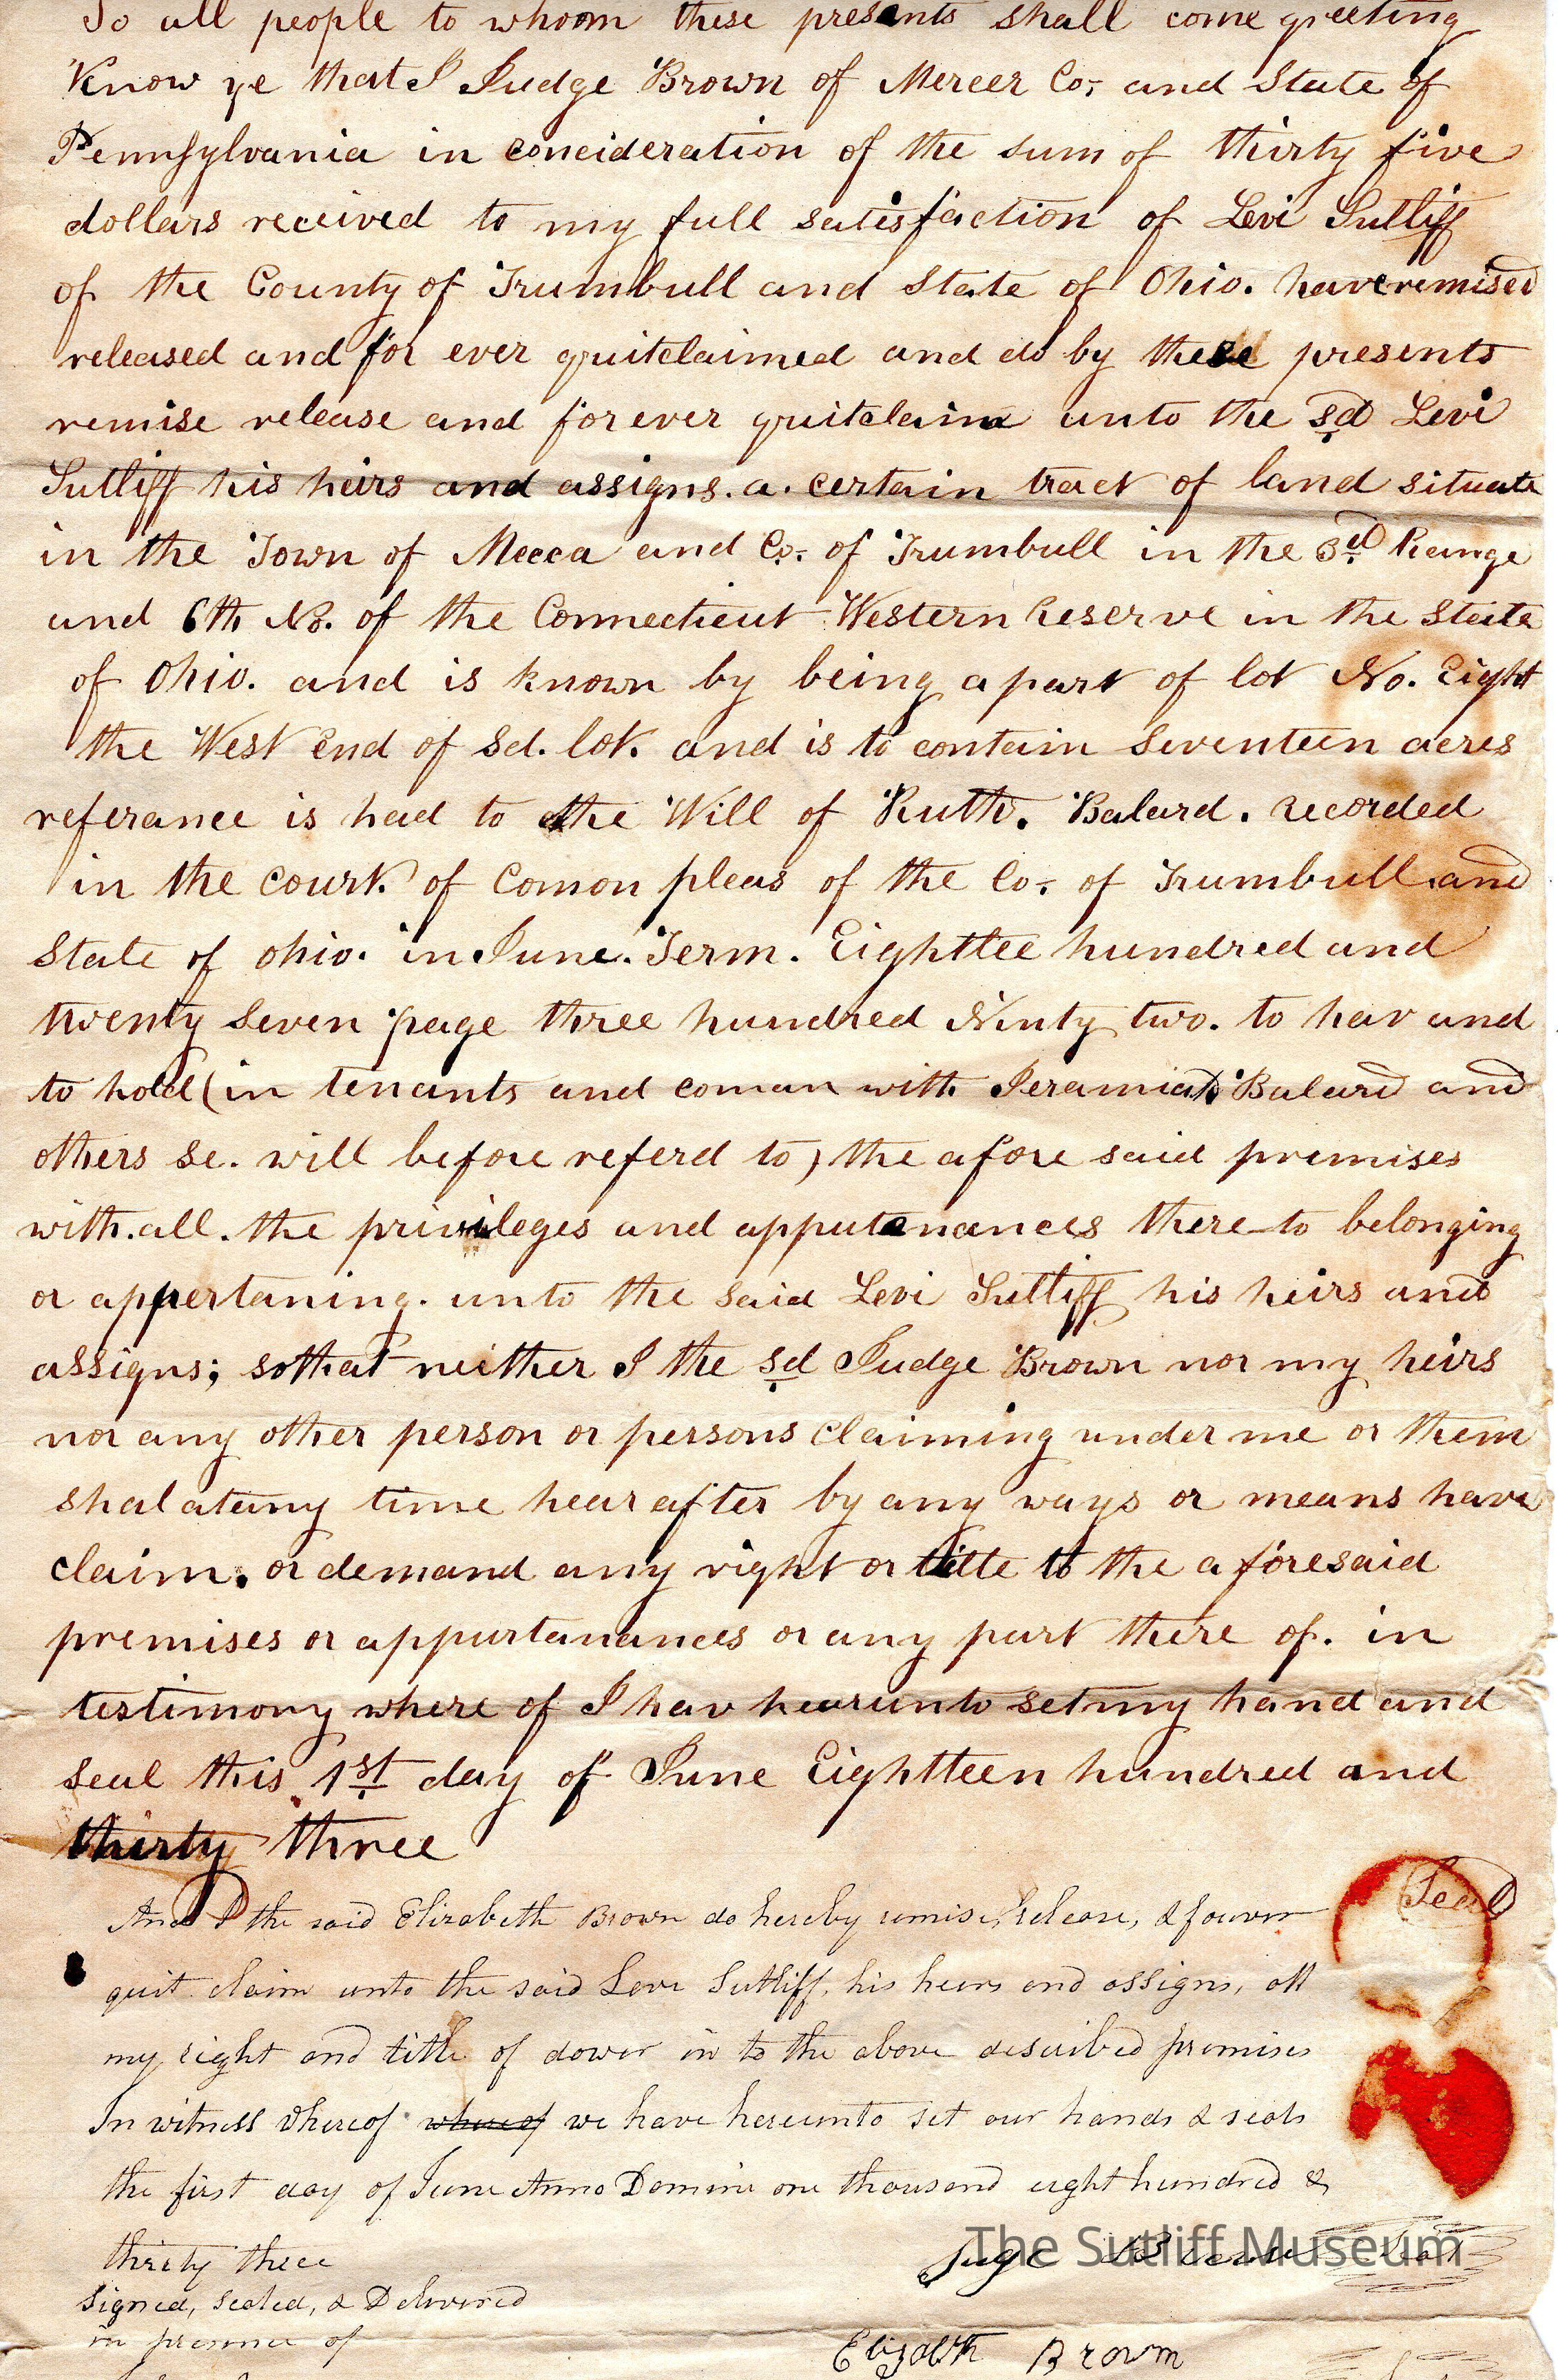 To all people to whom these presents shall come greeting
Know ye that I Judge Brown of Mercer Co; and State of
Pennsylvania in concideration of the sum of thirty five
dollars received to my full satisfaction of Levi Sutliff
of the County of Trumbull and State of Ohio. have remised
released and for ever quitclaimed and do by these presents
remise release and forever quitclaim unto the sd Levi
Sutliff his heirs and assigns. a. certain tract of land situate
in the Town of Mecca and Co. of Trumbull in the 3d Range
and 6th No. of the Connecticut Western Reserve in the State
of Ohio. and is known by being a part of lot No. Eight
the West End of Sd. lot. and is to contain Seventeen acres
referance is had to the Will of Ruth. Balard. Recorded
in the court. of Comon pleas of the Co. of Trumbull and
State of ohio. in June. Term. Eighttee hundred and
twenty Seven page three hundred Ninty two. to hav and
to hold (in tenants and coman with Jeramiah Balard and
others se. will before referd to) the afore said premises
with. all. the privileges and apputenances there to belonging
or appertaning. unto the Said Levi Sutliff his heirs and
assigns; so that neither I the sd Judge Brown nor my heirs
nor any other person or persons claiming under me or them
shal at any time hear after by any ways or means have
claim. or demand any right or title to the aforesaid
premises or appurtanances or any part there of. in
testimony where of I hav hearunto set my hand and
seal this 1st day of June Eightteen hundred and
thirty three
Seal
And I the said Elizabeth Brown do hereby remise, release, & forever
quit claim unto the said Levi Sutliff, his heirs and assigns, all
my right and title of dower in to the above described premises
In witness whereof whereof we have hereunto set our hands & seals
the first day of June Anno Domini one thousand eight hundred &
thirty three
The Sutliff Museum
Juge Brown Seal
signed, sealed, & Delivered
in presence of
Elizabth Brown